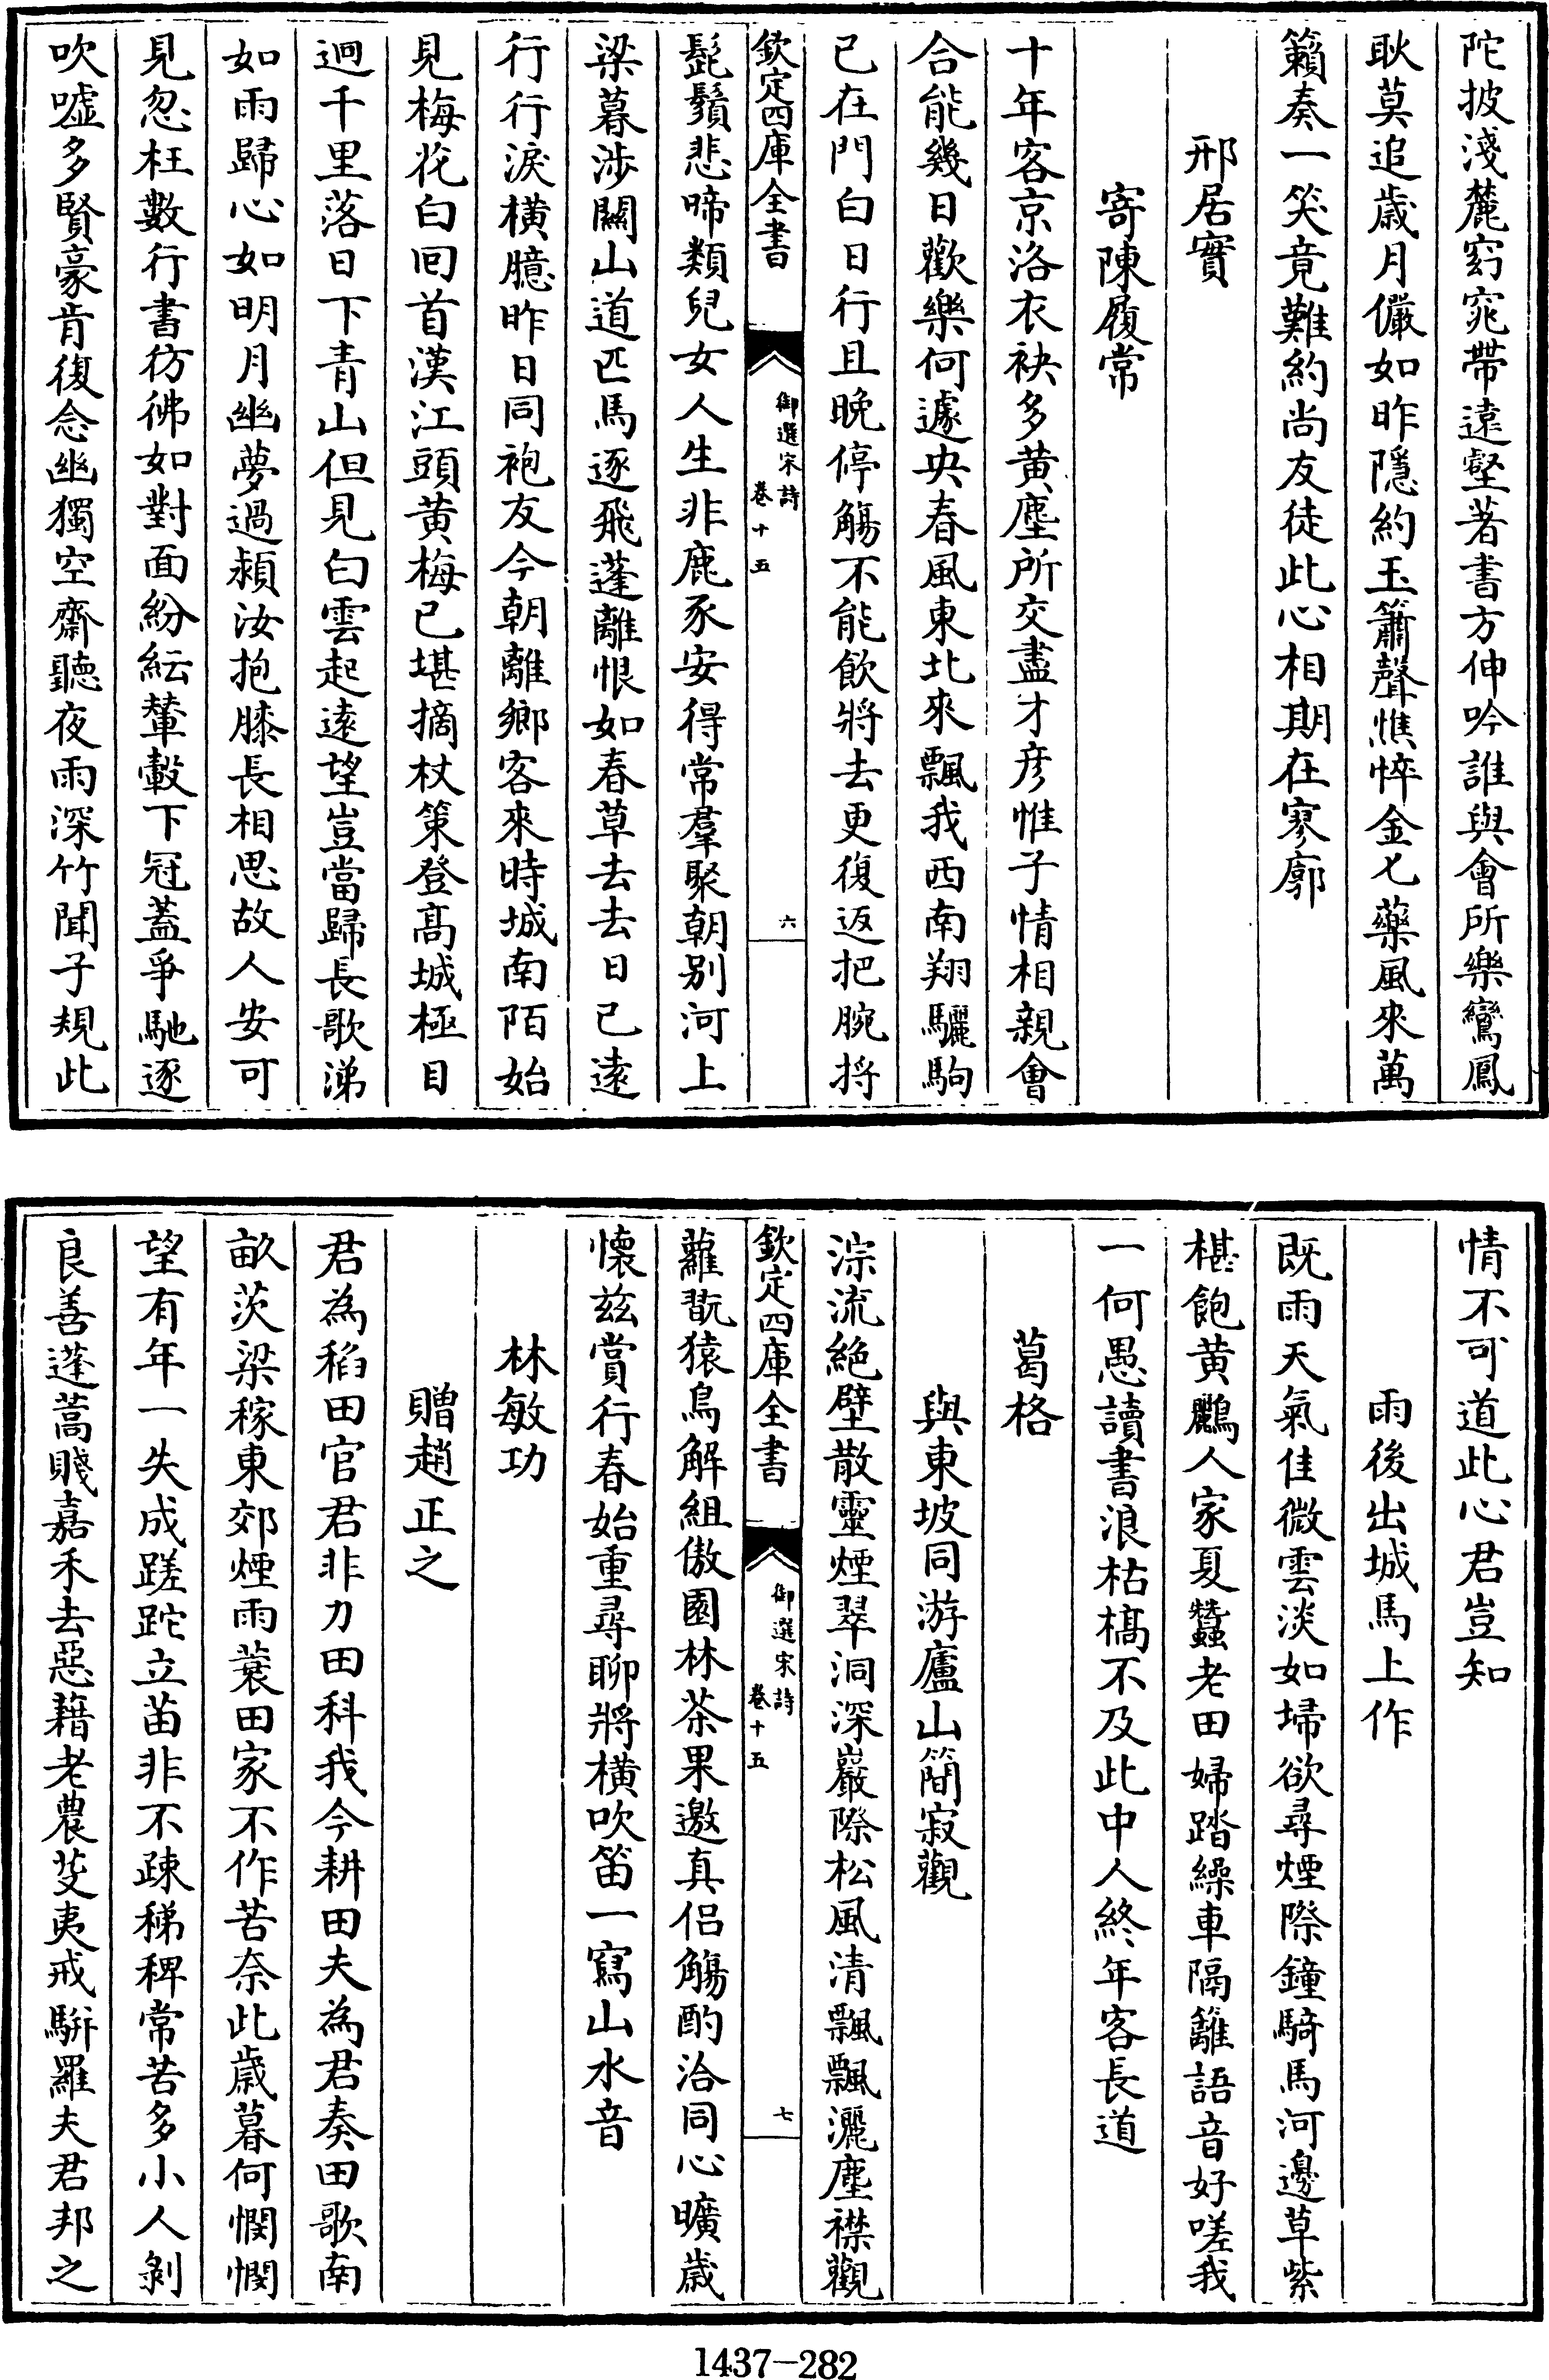 陀披淺麓窈窕帶遠壑著書方伸吟誰與會所樂鸞鳳
耿莫追歲月儼如昨隱約玉簫聲憔悴金七藥風來萬
籟奏一笑竟難約尚友徒此心相期在寥廓
邢居實
寄陳履常
十年客京洛衣袂多黄塵所交盡才彦惟子情相親會
合能幾日歡樂何遽央春風東北來飄我西南翔驪駒
已在門白日行且晚停觴不能飲將去更復返把腕捋
欽定四庫全書
御選宋詩
卷十五
六
髭鬚悲啼類兒女人生非鹿豕安得常羣聚朝别河上
梁暮涉關山道匹馬逐飛蓬離恨如春草去去日已遠
行行淚橫臆昨日同袍友今朝離鄉客來時城南陌始
見梅花白回首漢江頭黄梅已堪摘杖策登高城極目
迥千里落日下青山但見白雲起遠望豈當歸長歌涕
如雨歸心如明月幽夢過潁汝抱膝長相思故人安可
見忽枉數行書彷彿如對面紛紜輦轂下冠蓋爭馳逐
吹噓多賢豪肯復念幽獨空齋聽夜雨深竹聞子規此
情不可道此心君豈知
雨後出城馬上作
既雨天氣佳微雲淡如埽欲尋煙際鐘騎馬河邊草紫
椹飽黄鸝人家夏蠶老田婦踏繰車隔籬語音好嗟我
一何愚讀書浪枯槁不及此中人終年客長道
葛格
與東坡同游廬山簡寂觀
淙流絶壁散靈煙翠洞深巖際松風清飄飄灑塵襟觀
欽定四庫全書
御選宋詩
卷十五
七
蘿翫猿鳥解組傲園林茶果邀真侣觴酌洽同心曠歲
懷兹賞行春始重尋聊將橫吹笛一寫山水音
林敏功
贈趙正之
君為稻田官君非力田科我今耕田夫為君奏田歌南
畝茨梁稼東郊煙雨蓑田家不作苦奈此歲暮何憫憫
望有年一失成蹉跎立苗非不疎稊稗常苦多小人剝
良善蓬蒿賤嘉禾去惡藉老農芟夷戒駢羅夫君邦之
1437-282